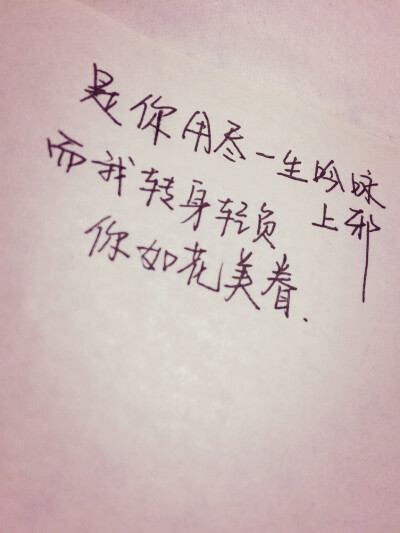 是你用尽一生吟咏
上邪
而我转身轻负
你如花美眷.